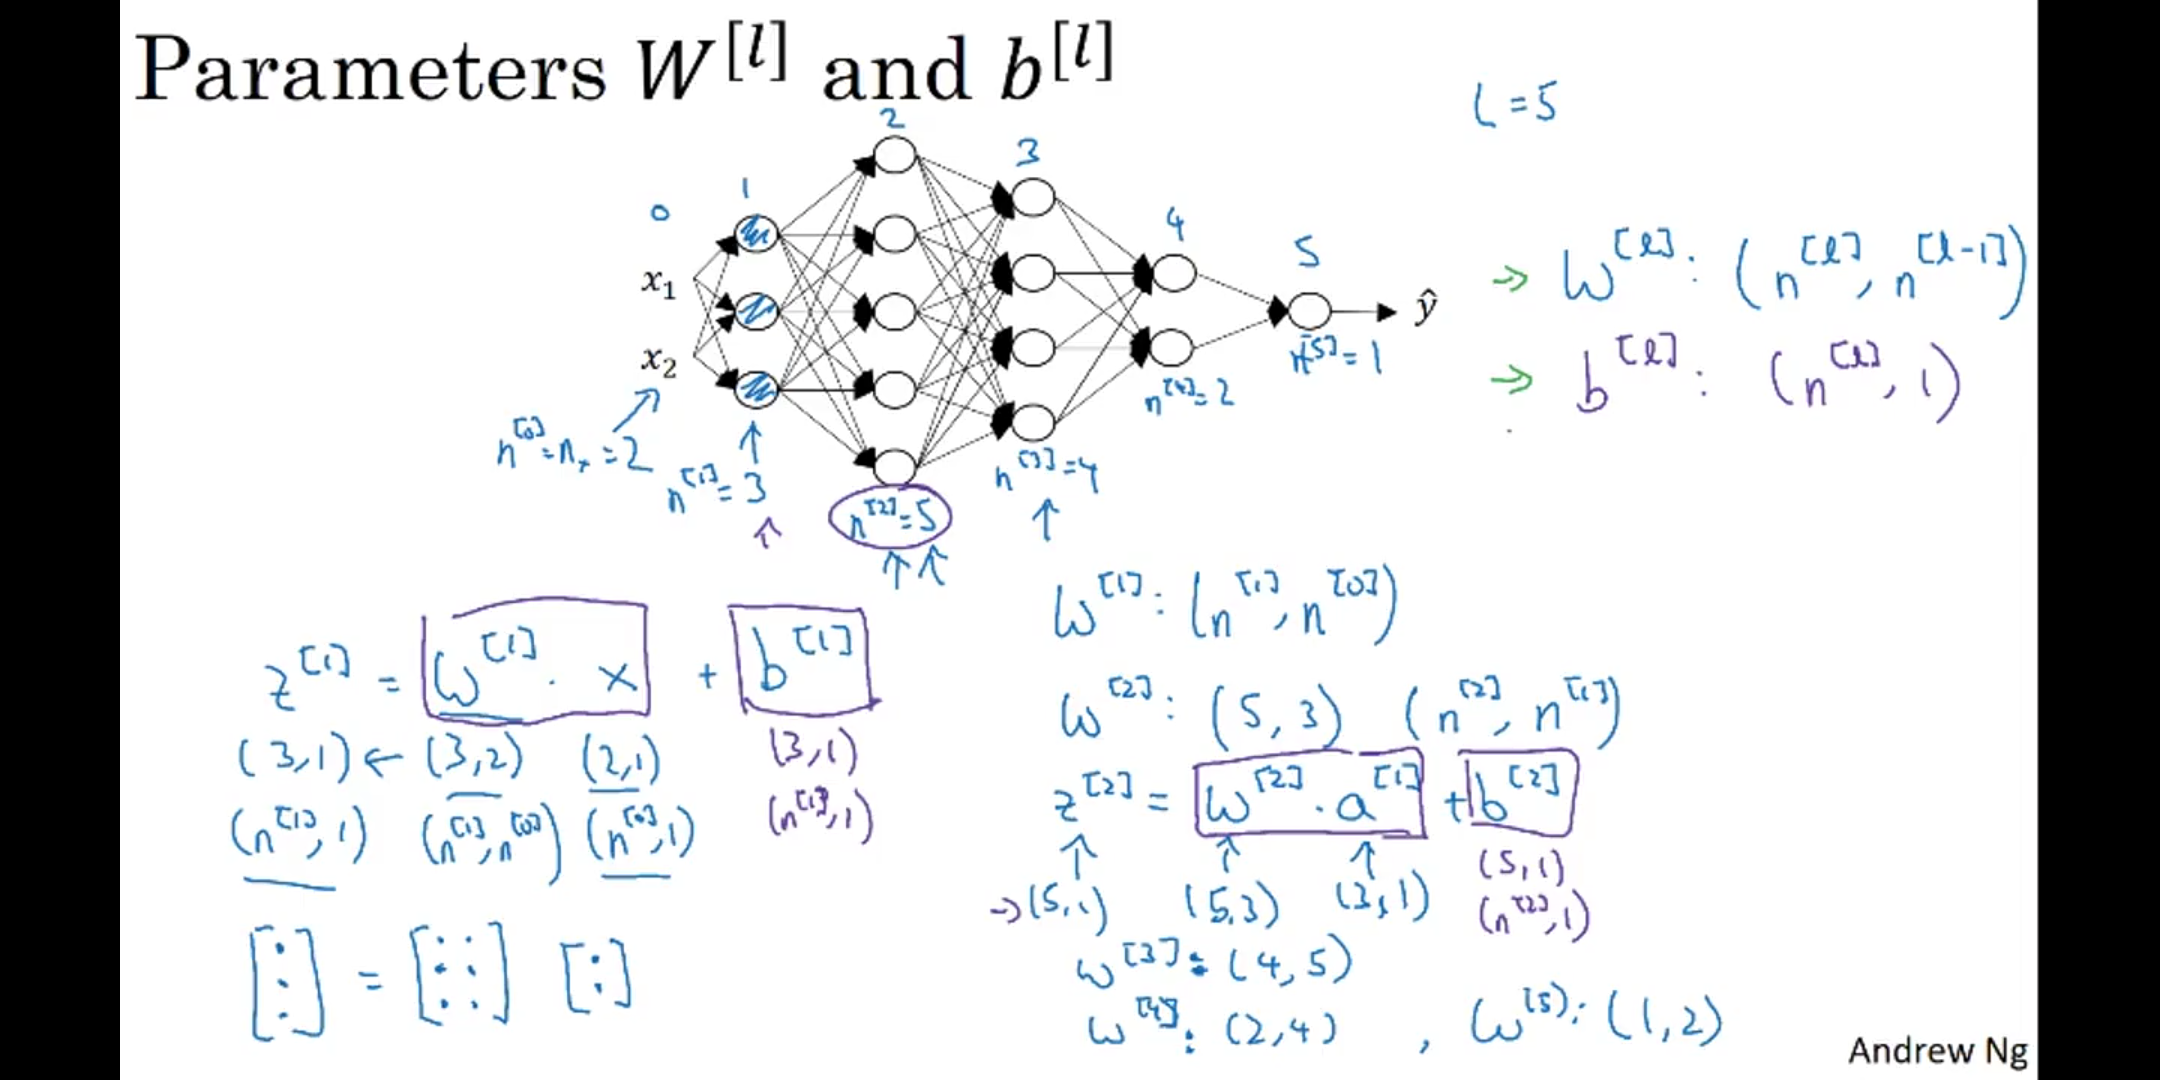 Parameters W^[l] and b^[l]
L = 5
0 1 2 3 4 5
x₁
x₂
ŷ
n^[0] = nₓ = 2
n^[1] = 3
n^[2] = 5
n^[3] = 4
n^[4] = 2
n^[5] = 1
→ W^[l] : (n^[l], n^[l-1])
→ b^[l] : (n^[l], 1)
z^[1] = W^[1] · x + b^[1]
(3,1) ← (3,2) (2,1) (3,1)
(n^[1], 1) (n^[1], n^[0]) (n^[0], 1) (n^[1], 1)
[ ] = [ ] [ ]
W^[1] : (n^[1], n^[0])
W^[2] : (5, 3) (n^[2], n^[1])
z^[2] = W^[2] · a^[1] + b^[2]
→ (5,1) (5,3) (3,1) (5,1)
(n^[2], 1)
W^[3] : (4, 5)
W^[4] : (2,4) , W^[5] : (1,2)
Andrew Ng